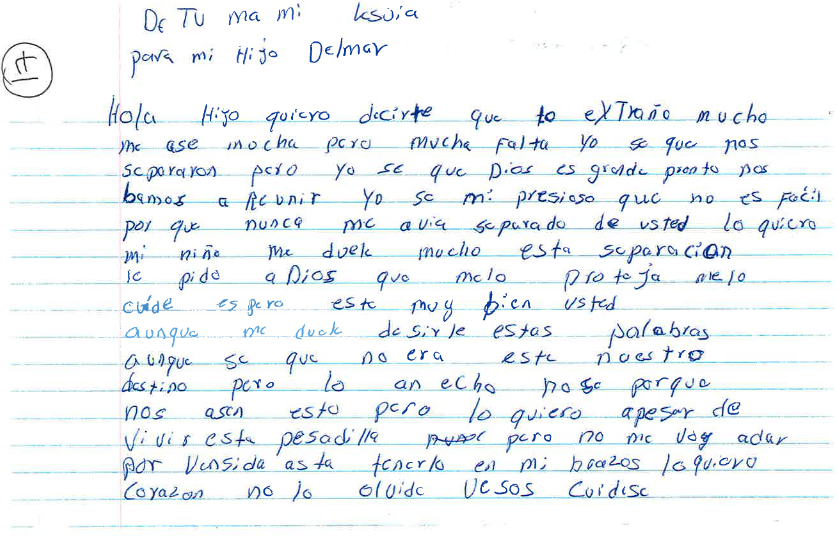 De Tu mami Ksuia
para mi Hijo Delmar
Hola Hijo quiero decirte que lo exTraño mucho
me ase mocha pero mucha Falta yo se que nos
separaron pero yo se que Dios es grande pronto nos
bamos a Reunir yo se mi presioso que no es Facil
por que nunca me avia separado de usted lo quiero
mi niño me duele mucho esta separacion
le pido a Dios que melo proteja melo
cuide espero este muy bien usted
aunque me duele desirle estas palabras
aunque se que no era este nuestro
destino pero lo an echo nose porque
nos asen esto pero lo quiero apesar de
vivir esta pesadilla pero no me voy adar
por Vensida asta tenerlo en mi brazos lo quiero
Corazon no lo olvide Vesos Cuidese